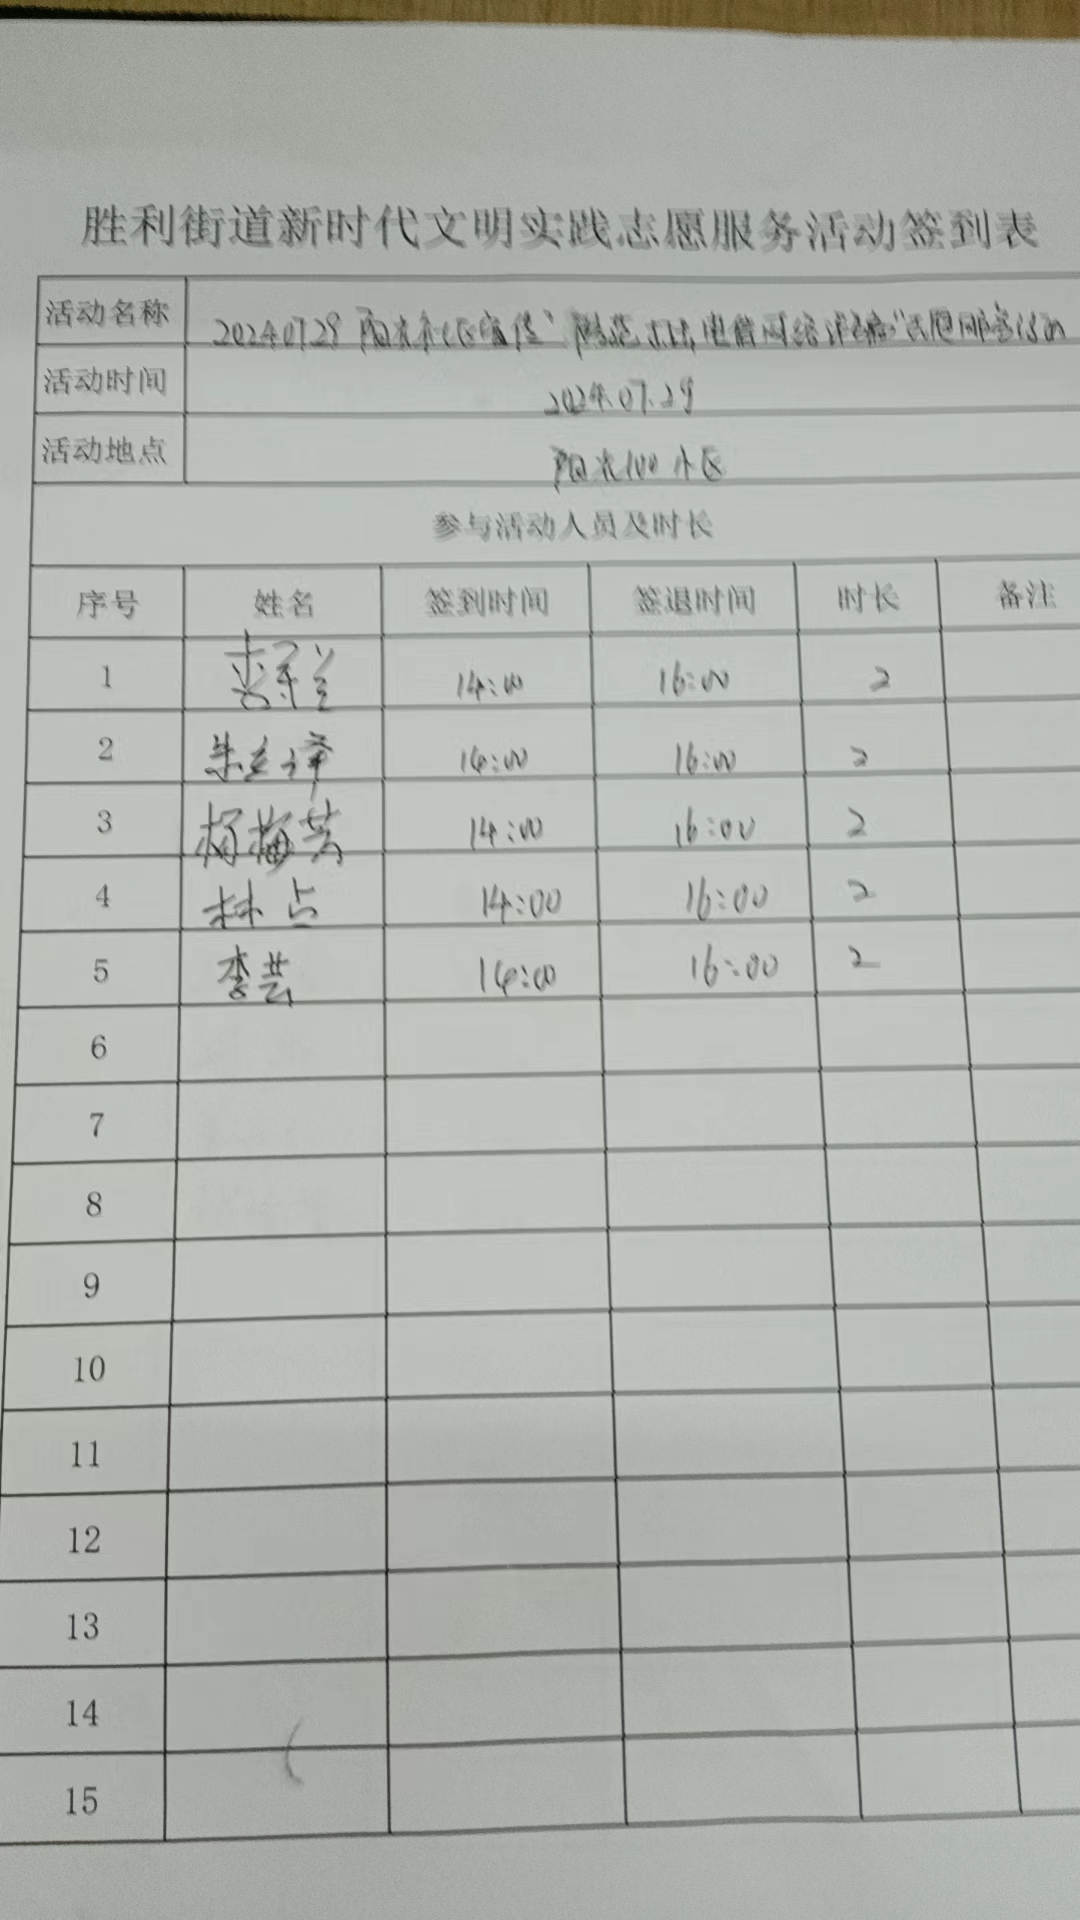 胜利街道新时代文明实践志愿服务活动签到表
活动名称 20240729 阳光社区宣传"防范打击电信网络诈骗"志愿服务活动
活动时间 2024.07.29
活动地点 阳光100小区
参与活动人员及时长
序号 姓名 签到时间 签退时间 时长 备注
1 14:00 16:00 2
2 14:00 16:00 2
3 杨梅芸 14:00 16:00 2
4 林点 14:00 16:00 2
5 李芸 14:00 16:00 2
6
7
8
9
10
11
12
13
14
15